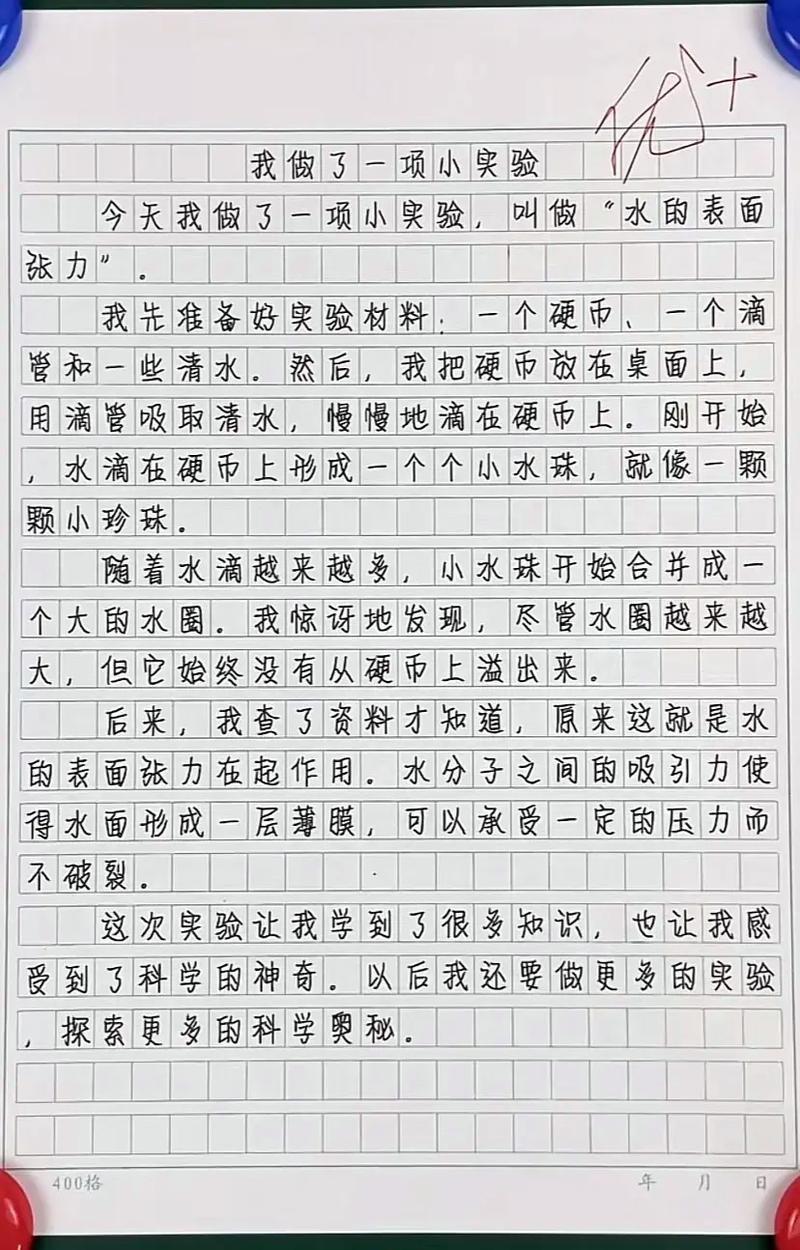 优+
我做了一项小实验
今天我做了一项小实验，叫做“水的表面
张力”。
我先准备好实验材料：一个硬币、一个滴
管和一些清水。然后，我把硬币放在桌面上，
用滴管吸取清水，慢慢地滴在硬币上。刚开始
，水滴在硬币上形成一个个小水珠，就像一颗
颗小珍珠。
随着水滴越来越多，小水珠开始合并成一
个大的水圈。我惊讶地发现，尽管水圈越来越
大，但它始终没有从硬币上溢出来。
后来，我查了资料才知道，原来这就是水
的表面张力在起作用。水分子之间的吸引力使
得水面形成一层薄膜，可以承受一定的压力而
不破裂。
这次实验让我学到了很多知识，也让我感
受到了科学的神奇。以后我还要做更多的实验
，探索更多的科学奥秘。
400格
年 月 日